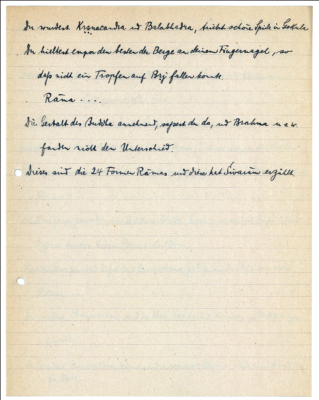 Du wurdest Kṛṣṇacandra und Balabhadra, triebst schöne Spiele in Gokula.
Du hieltest empor den besten der Berge an deinem Fingernagel, so
daß nicht ein Tropfen auf Brj fallen konnte.
Rāma ....
Die Gestalt des Buddha annehmend, saßest du da, und Brahma u.a.
fanden nicht den Unterschied.
Dieses sind die 24 Formen Rāmas und diese hat Śivarām erzählt.